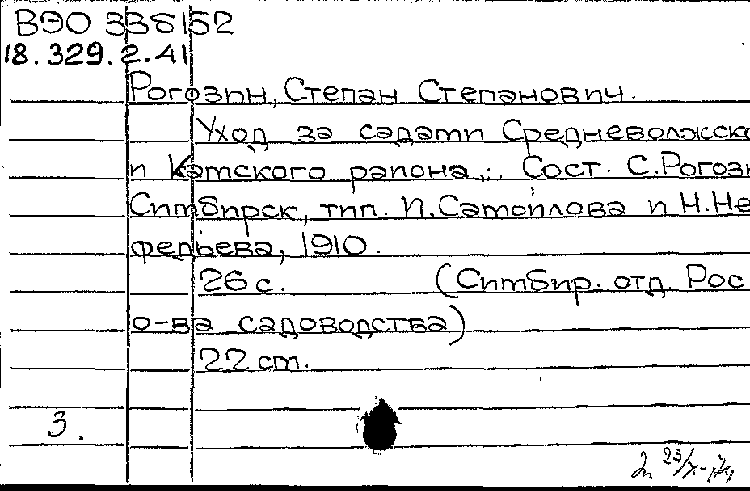 ВЭО 338152
18.329.2.41
Рогозин, Степан Степанович.
Уход за садами Средневолжско
и Камского района. Сост. С.Рогози
Симбирск, тип. И.Самойлова и Н.Не
федьева, 1910.
26 с. (Симбир. отд. Рос
о-ва садоводства)
22 см.
3.